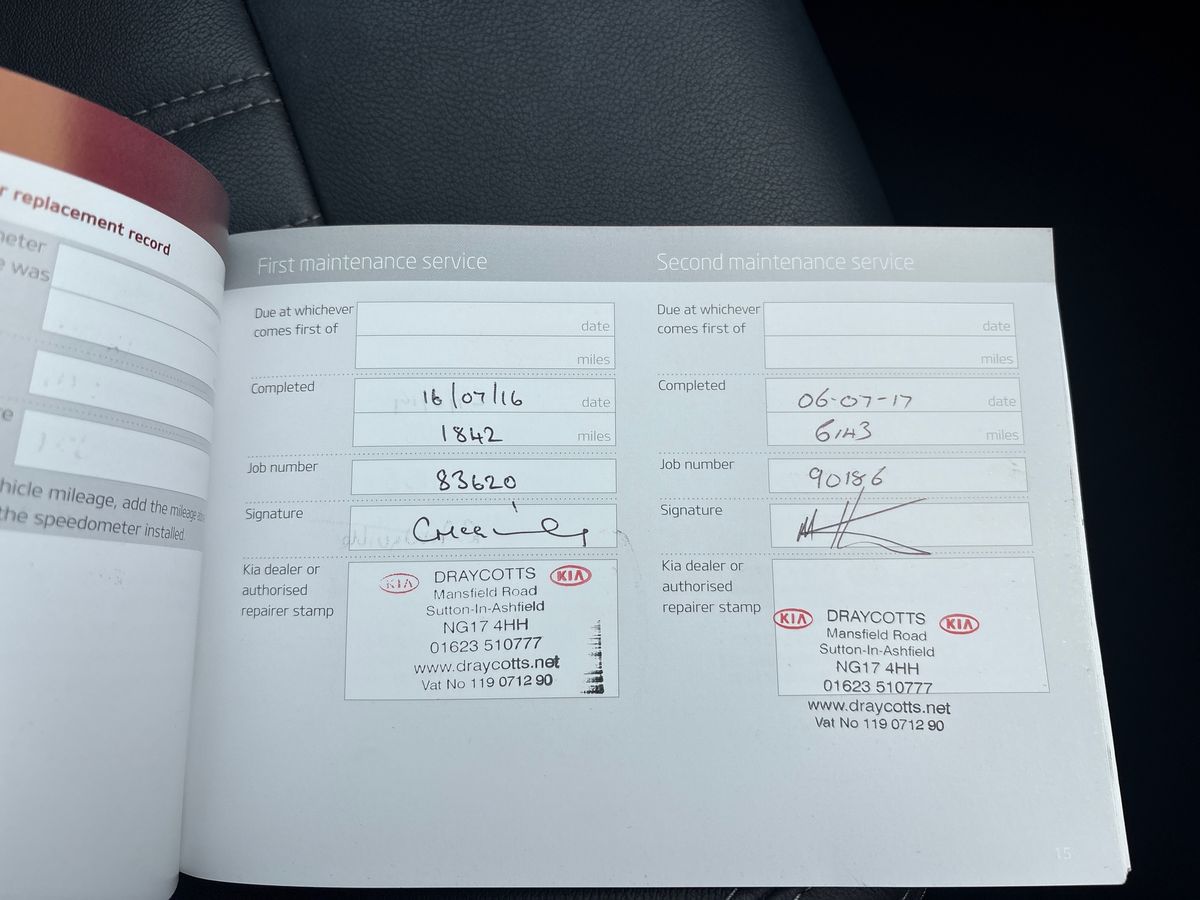 r replacement record
meter
e was
re
hicle mileage, add the mileage
the speedometer installed.
First maintenance service
Due at whichever
comes first of
date
miles
Completed
16/07/16
date
1842
miles
Job number
83620
Signature
Kia dealer or
authorised
repairer stamp
KIA
DRAYCOTTS
KIA
Mansfield Road
Sutton-In-Ashfield
NG17 4HH
01623 510777
www.draycotts.net
Vat No 119 0712 90
Second maintenance service
Due at whichever
comes first of
date
miles
Completed
06-07-17
date
6143
miles
Job number
90186
Signature
Kia dealer or
authorised
repairer stamp
KIA
DRAYCOTTS
KIA
Mansfield Road
Sutton-In-Ashfield
NG17 4HH
01623 510777
www.draycotts.net
Vat No 119 0712 90
15